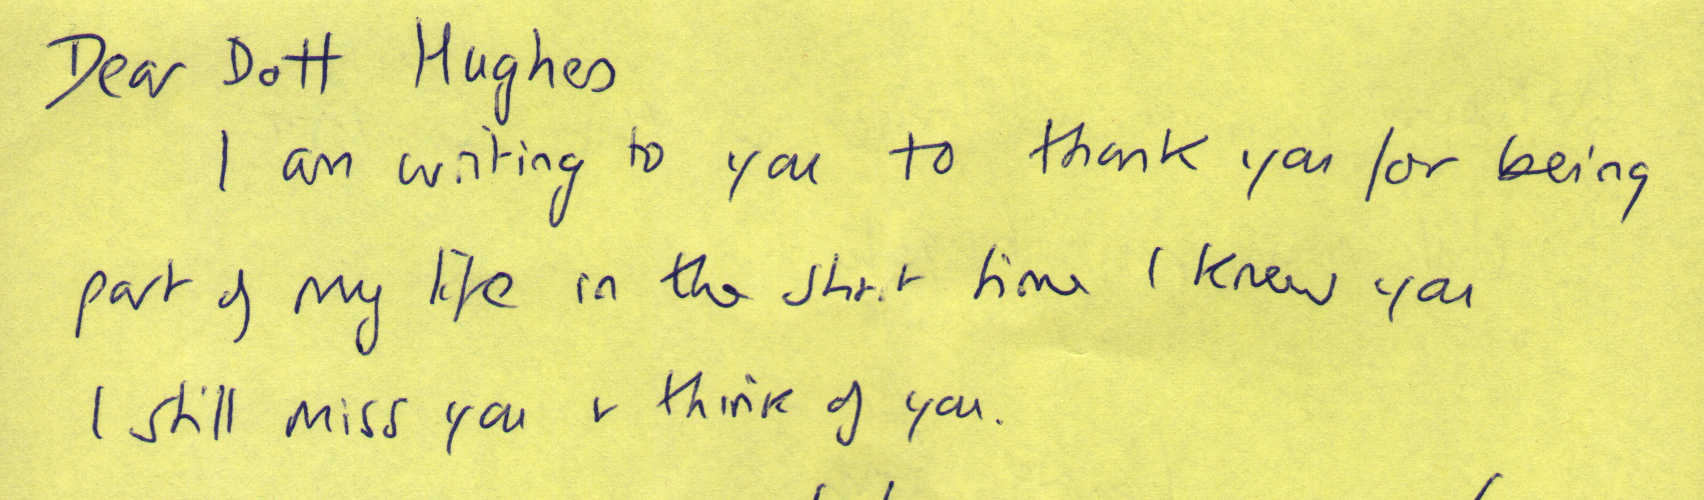 Dear Dott Hughes
I am writing to you to thank you for being
part of my life in the short time I knew you
I still miss you & think of you.